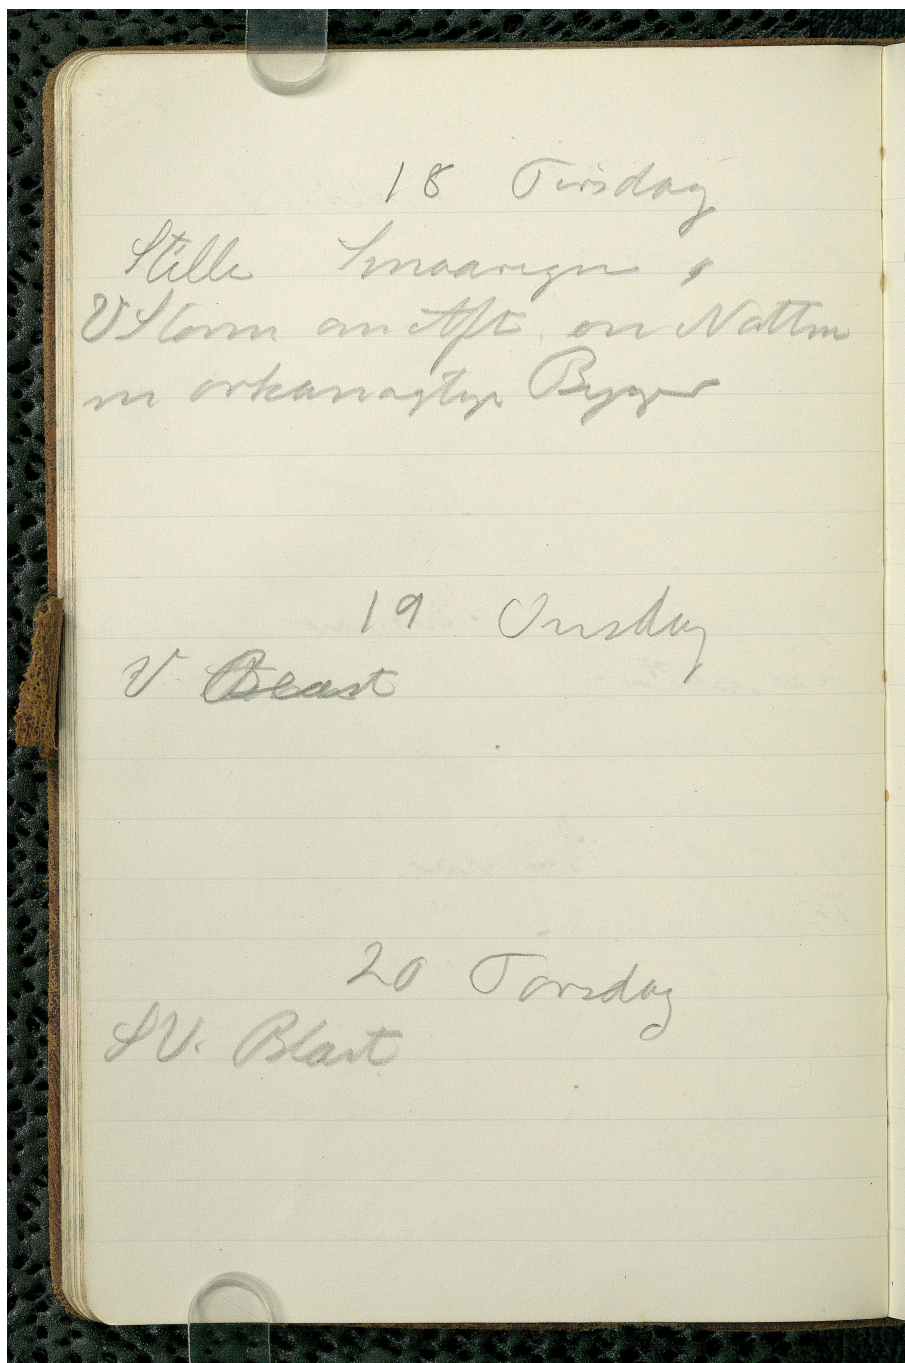 18 Tirsdag
Stille Smaaregn,
V Storm om Aft. om Natten
m orkanagtige Byger
19 Onsdag
V Blæst
20 Torsdag
SV. Blæst